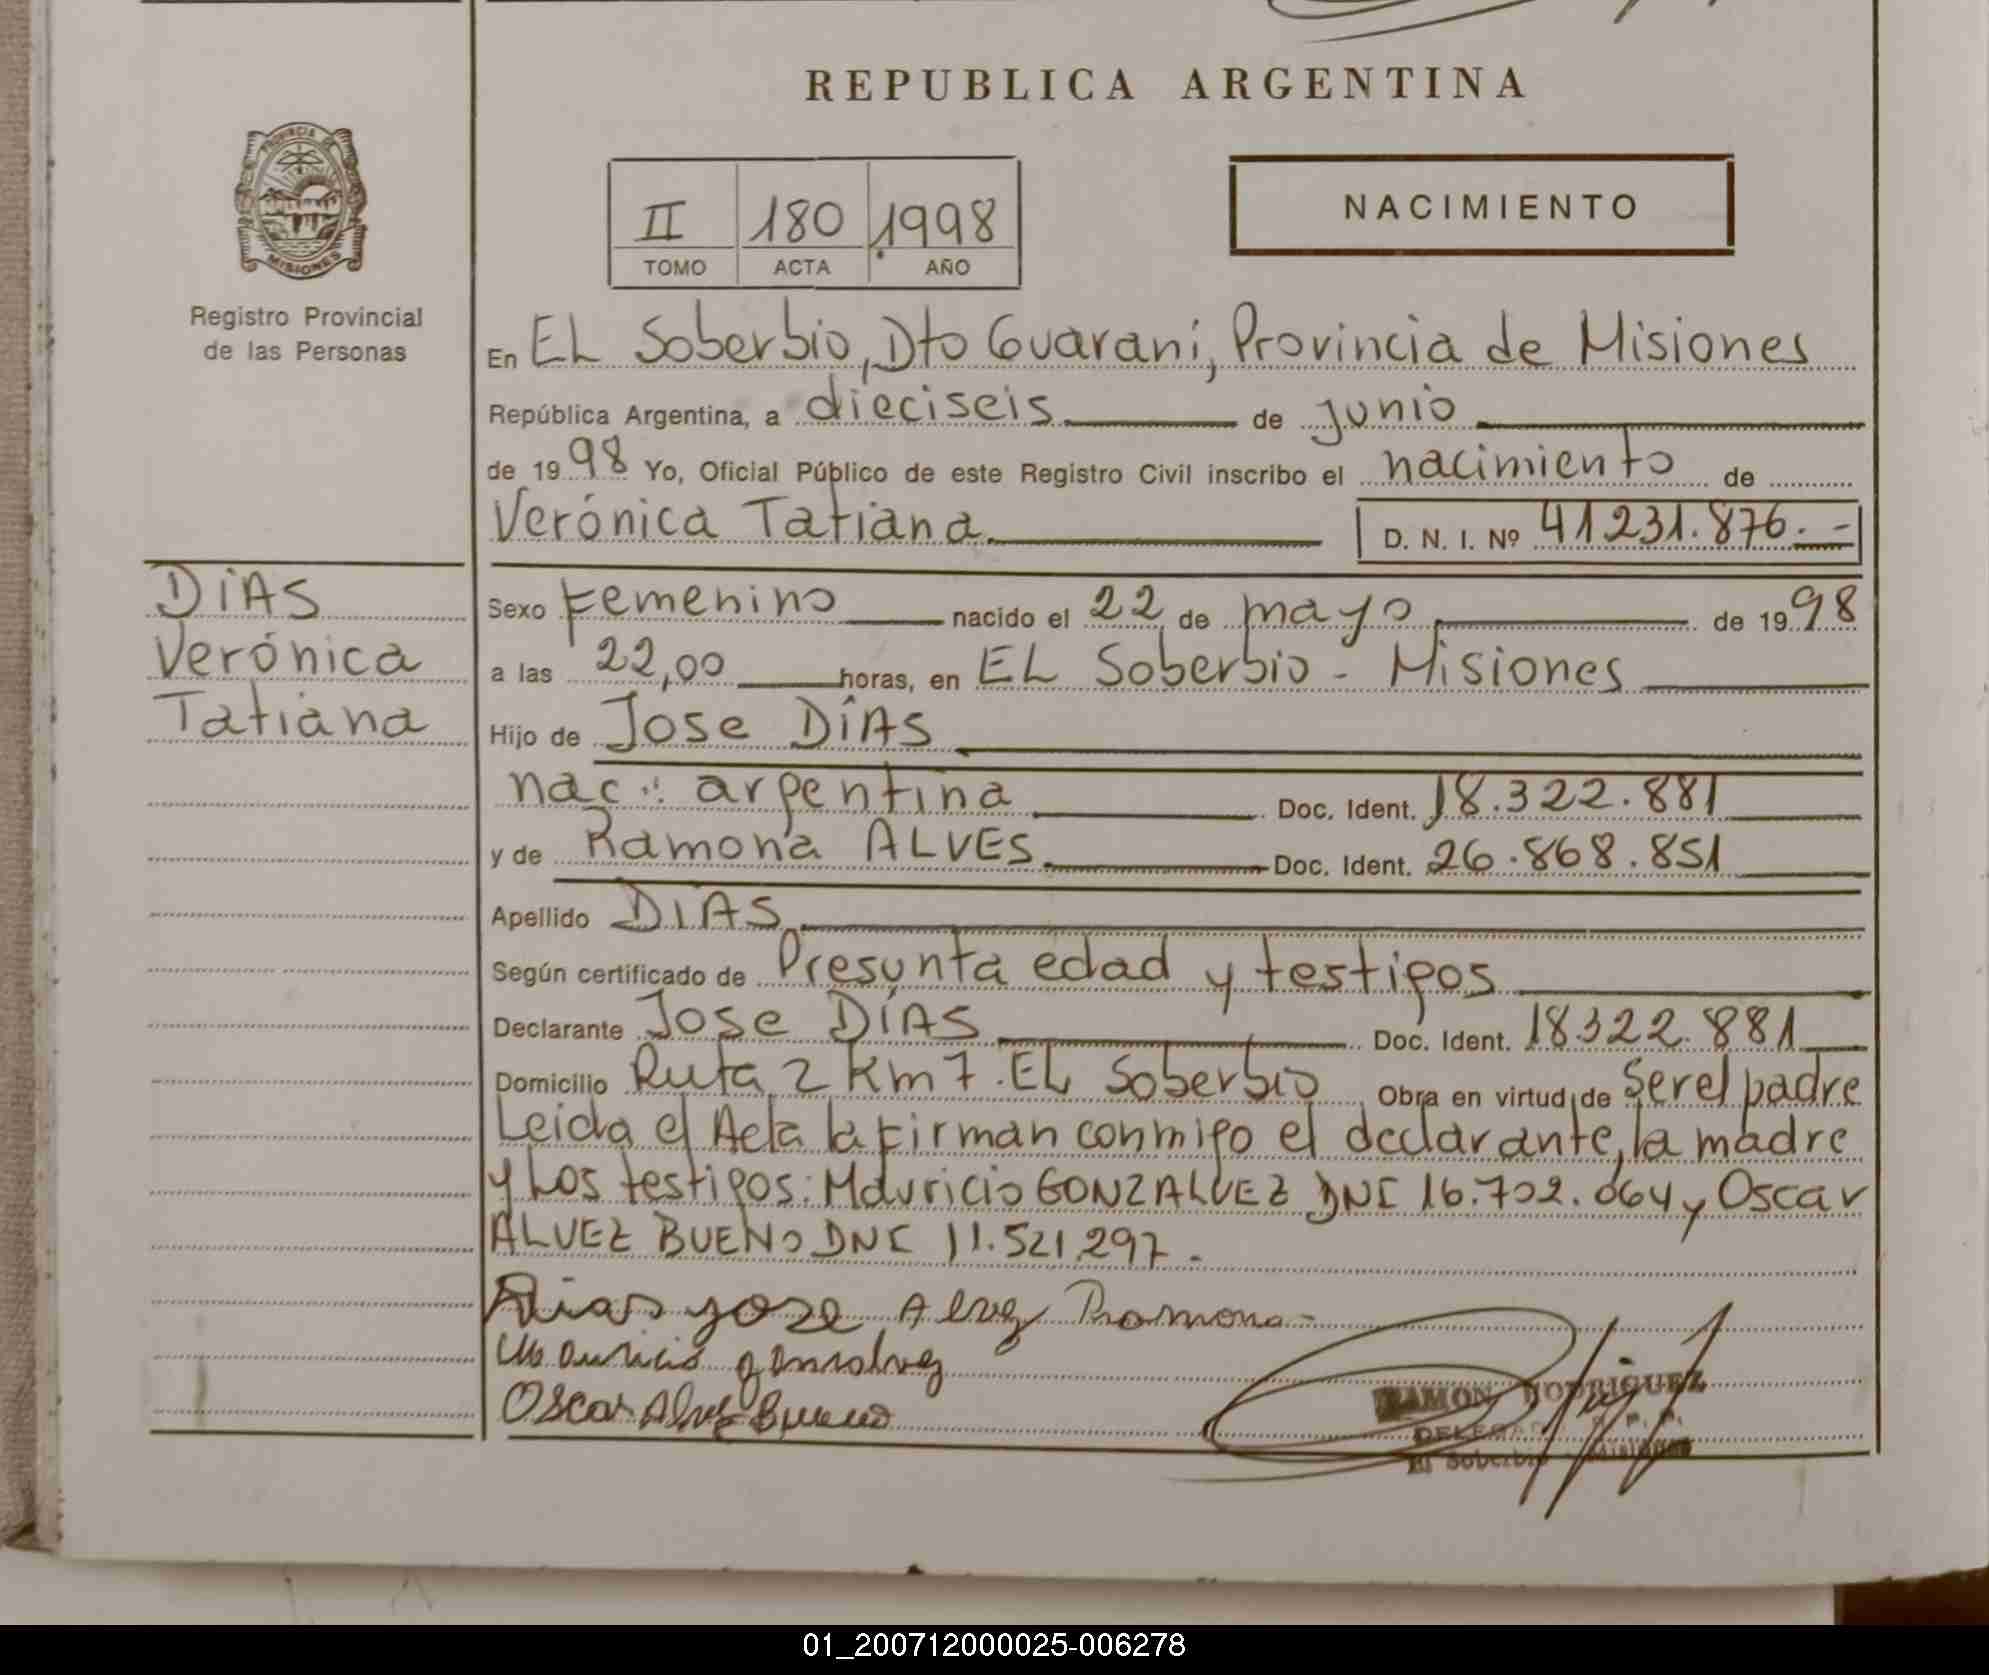 REPUBLICA ARGENTINA
PROVINCIA DE
MISIONES
Registro Provincial
de las Personas
II 180 1998
TOMO ACTA AÑO
NACIMIENTO
En EL Soberbio, Dto Guaraní, Provincia de Misiones
República Argentina, a dieciseis de junio
de 1998 Yo, Oficial Público de este Registro Civil inscribo el nacimiento de
Verónica Tatiana D. N. I. Nº 41231.876.-
DÍAS
Verónica
Tatiana
Sexo Femenino nacido el 22 de mayo de 1998
a las 22,00 horas, en EL Soberbio - Misiones
Hijo de Jose DÍAS
nac: argentina Doc. Ident. 18.322.881
y de Ramona ALVES Doc. Ident. 26.868.851
Apellido DIAS
Según certificado de Presunta edad y testigos
Declarante Jose DÍAS Doc. Ident. 18322.881
Domicilio Ruta 2 Km 7. EL Soberbio Obra en virtud de Ser el padre
Leida el Acta la firman conmigo el declarante, la madre
y Los testigos: Mauricio GONZALVEZ DNI 16.702.064 y Oscar
ALVEZ BUENO DNI 11.521.297.
Dias Jose Alvez Ramona
Mauricio gonsalvez
Oscar Alvez Bueno
RAMON RODRIGUEZ
El Soberbio Misiones
01_200712000025-006278